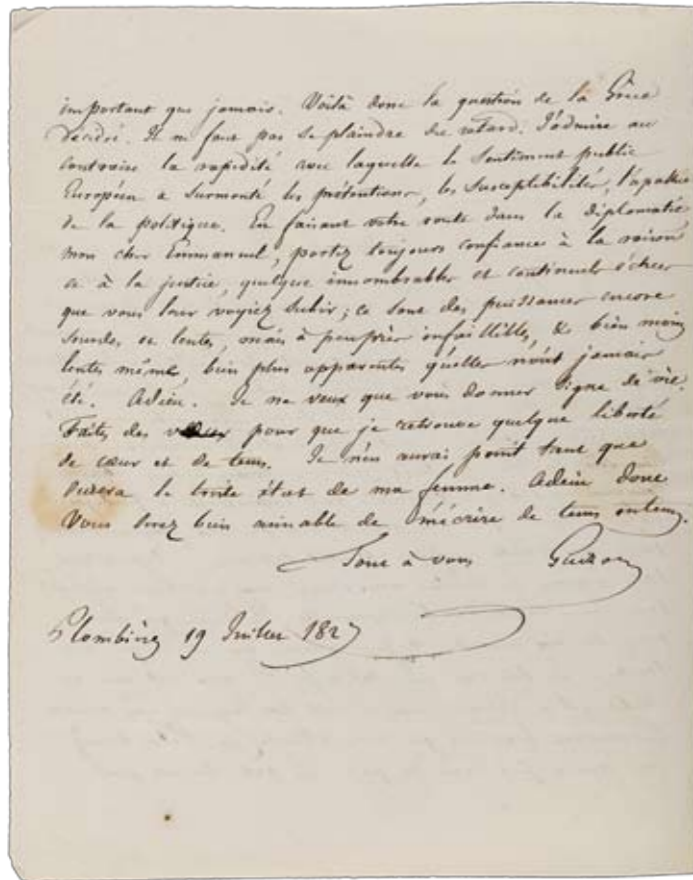 important que jamais. Voilà donc la question de la Grèce
décidée. Il ne faut pas se plaindre du retard. J'admire au
contraire la rapidité avec laquelle le sentiment public
Européen a surmonté les prétentions, les susceptibilités, l'apathie
de la politique. En faisant votre route dans la diplomatie,
mon cher Emmanuel, portez toujours confiance à la raison
et à la justice, quelque innombrables et continuels échecs
que vous leur voyiez subir; ce sont des puissances encore
sourdes et lentes, mais à peuprès infaillibles, & bien moins
lentes même, bien plus apparentes qu'elles n'ont jamais
été. Adieu. Je ne veux que vous donner signe de vie.
Faites des vœux pour que je retrouve quelque liberté
de cœur et de tems. Je n'en aurai point tant que
durera le triste état de ma femme. Adieu donc
Vous serez bien aimable de m'écrire de tems entems.
Tout à vous Guizot
Plombières 19 Juillet 1827